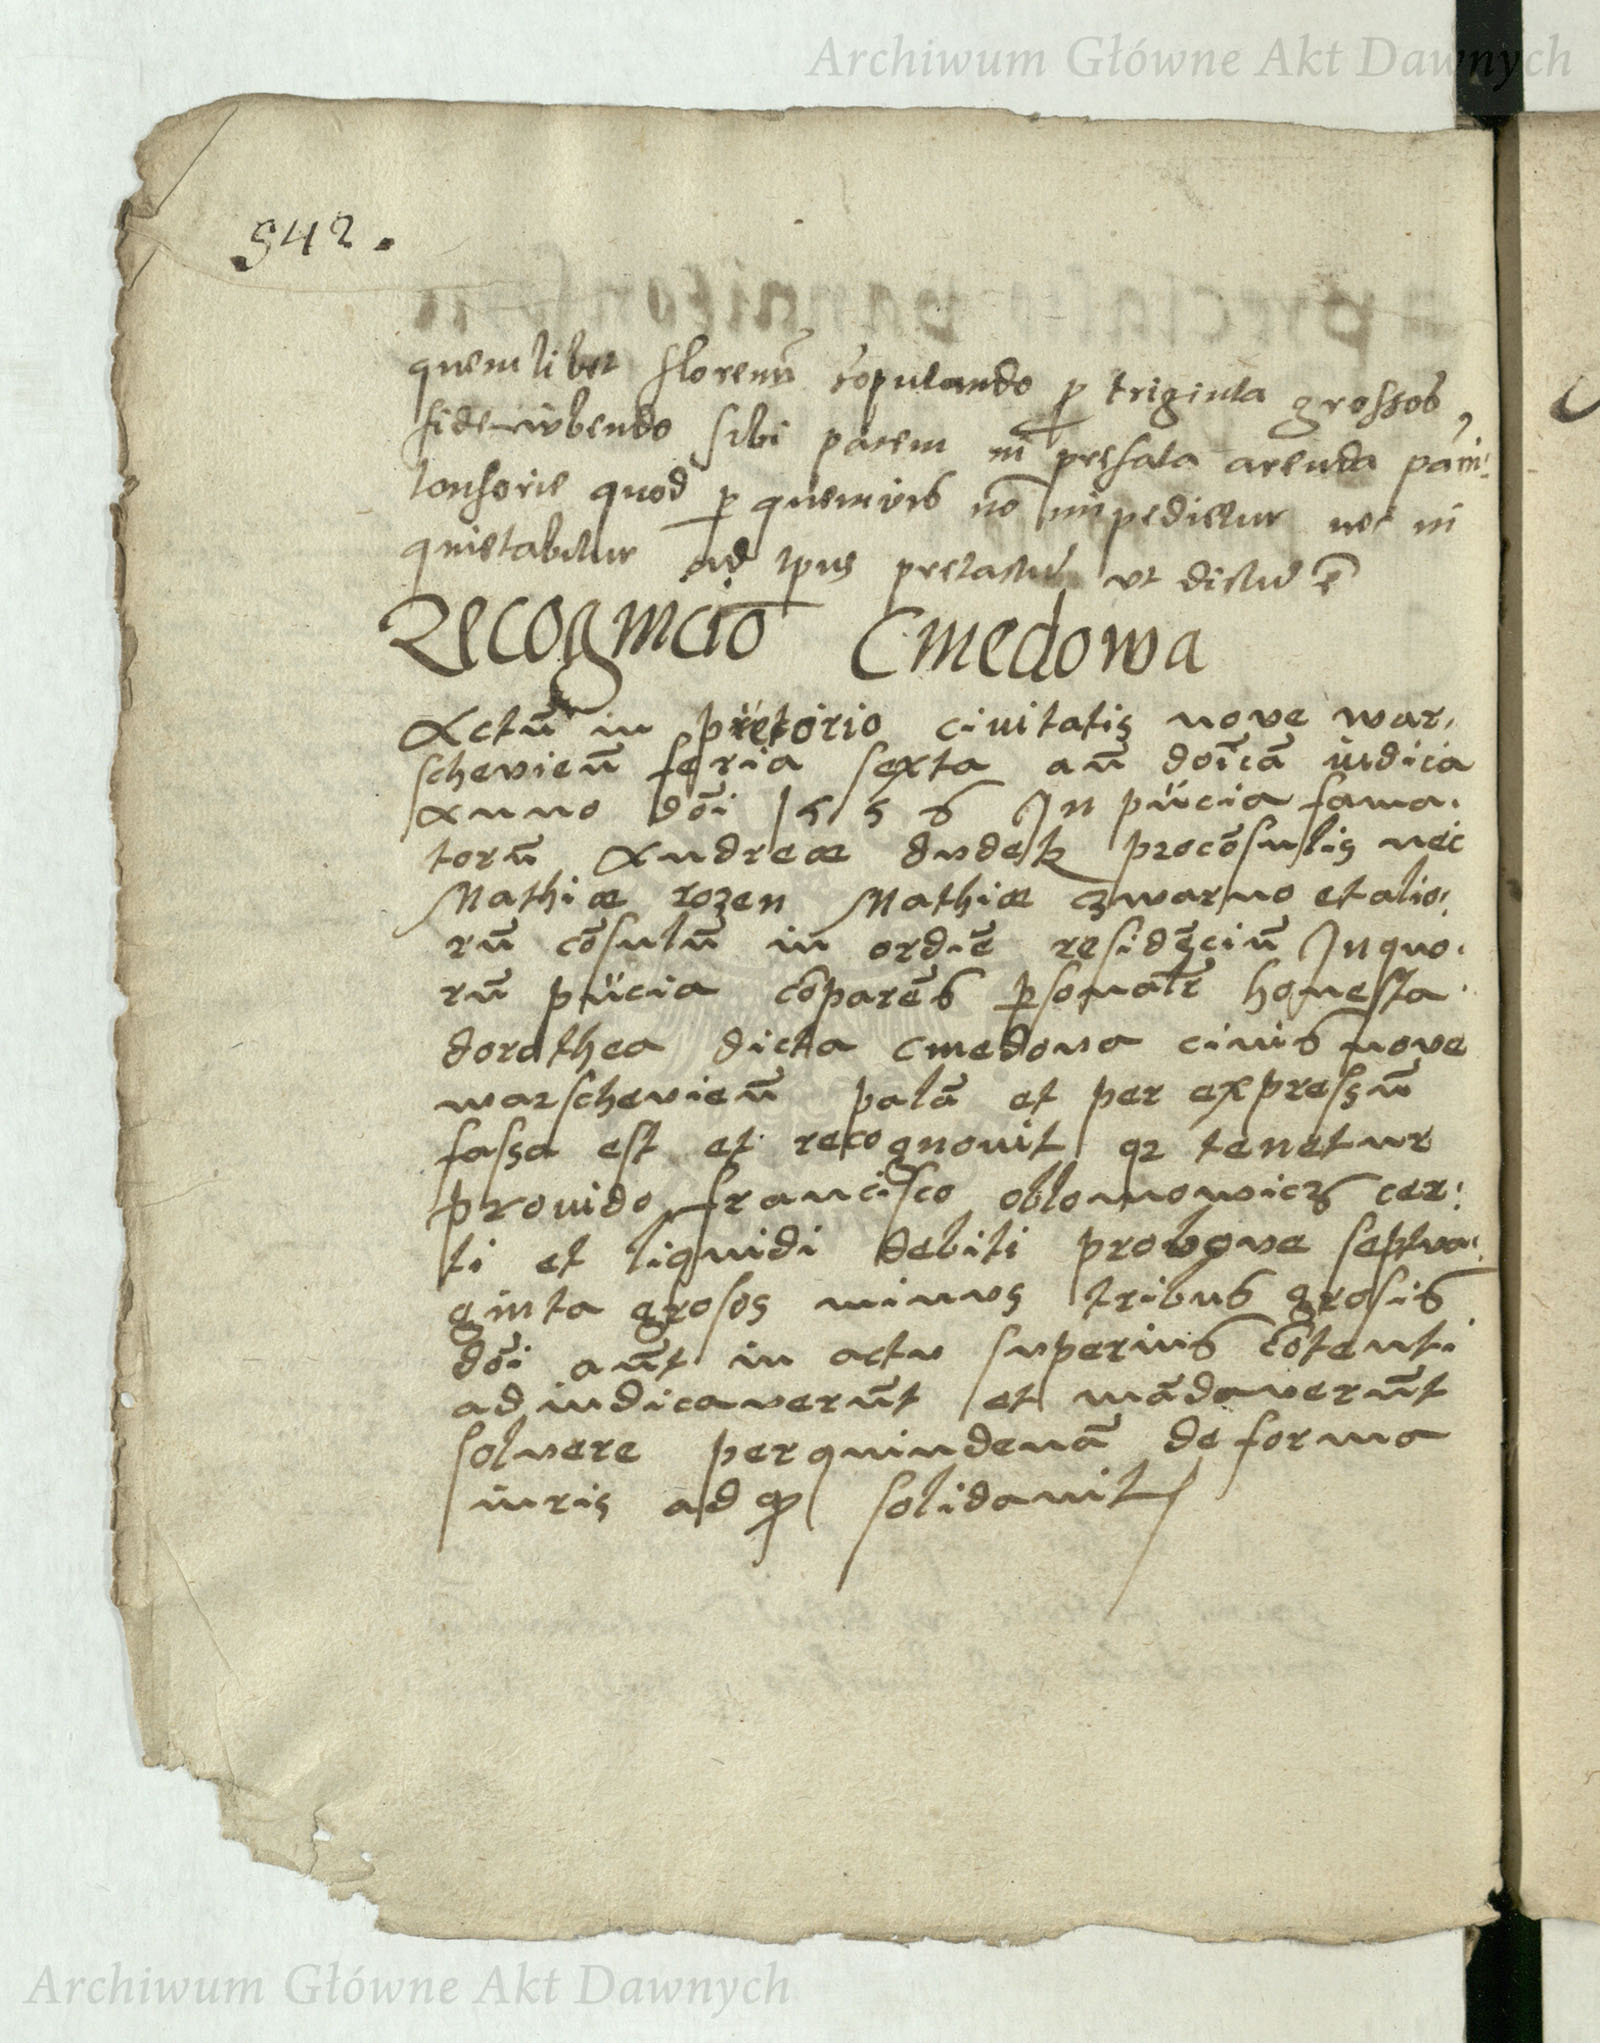 Archiwum Główne Akt Dawnych
542.
quemlibet florenū cōputando ꝑ triginta grossos,
fideiubendo sibi pacem in prefata arenda pāni⸗
tonsorie quod ꝑ quemvis nō impedietur nec in
quietabitur ad ipius pretactū ut dictū ē
Recognicio Cmedowa
Actū in pretorio civitatis nove war⸗
schevieñ feria sexta añ doīcā iudica
Anno dōi 1556 In pñcia fama⸗
torū Andreæ dudek procōsulis nec
Mathiæ rozen Mathiæ czwarno et alio⸗
rū cōsulū in ordiē residēciū In quo⸗
rū pñcia cōparēs ꝑsonalr̄ honesta
dorothea dicta cmedova civis nove
warschevieñ palā et per expressū
fassa est et recognovit qz tenetur
provido francisco oblomowicz cer⸗
ti et liquidi debiti probqve septua⸗
ginta grosos minus tribus grosis
dōi aūt in actu superius cōtenti
adiudicaverūt et mādaverūt
solvere per quindenā de forma
iuris ad qꝫ solidavit
Archiwum Główne Akt Dawnych